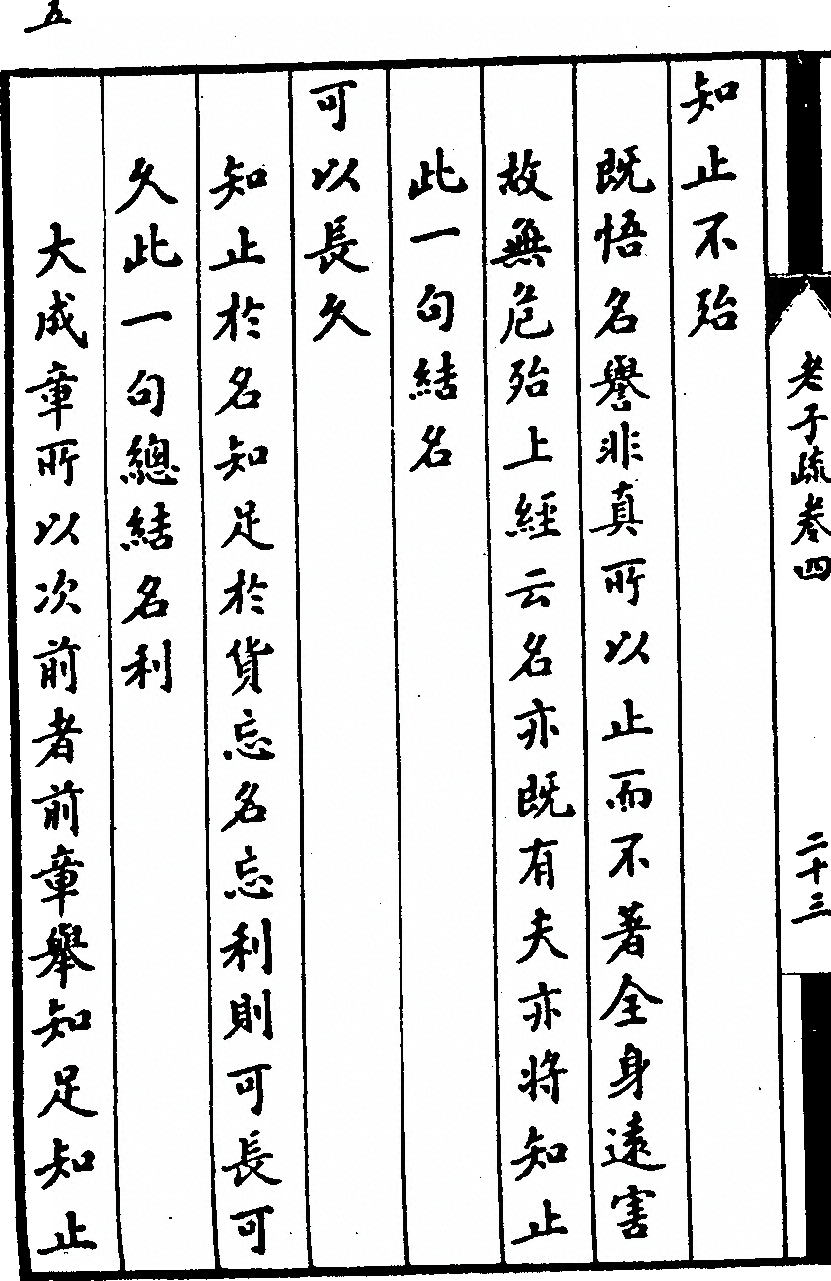 老子疏卷四
二十三
知止不殆
既悟名譽非真所以止而不著全身遠害
故無危殆上經云名亦既有夫亦將知止
此一句結名
可以長久
知止於名知足於貨忘名忘利則可長可
久此一句總結名利
大成章所以次前者前章舉知足知止
五